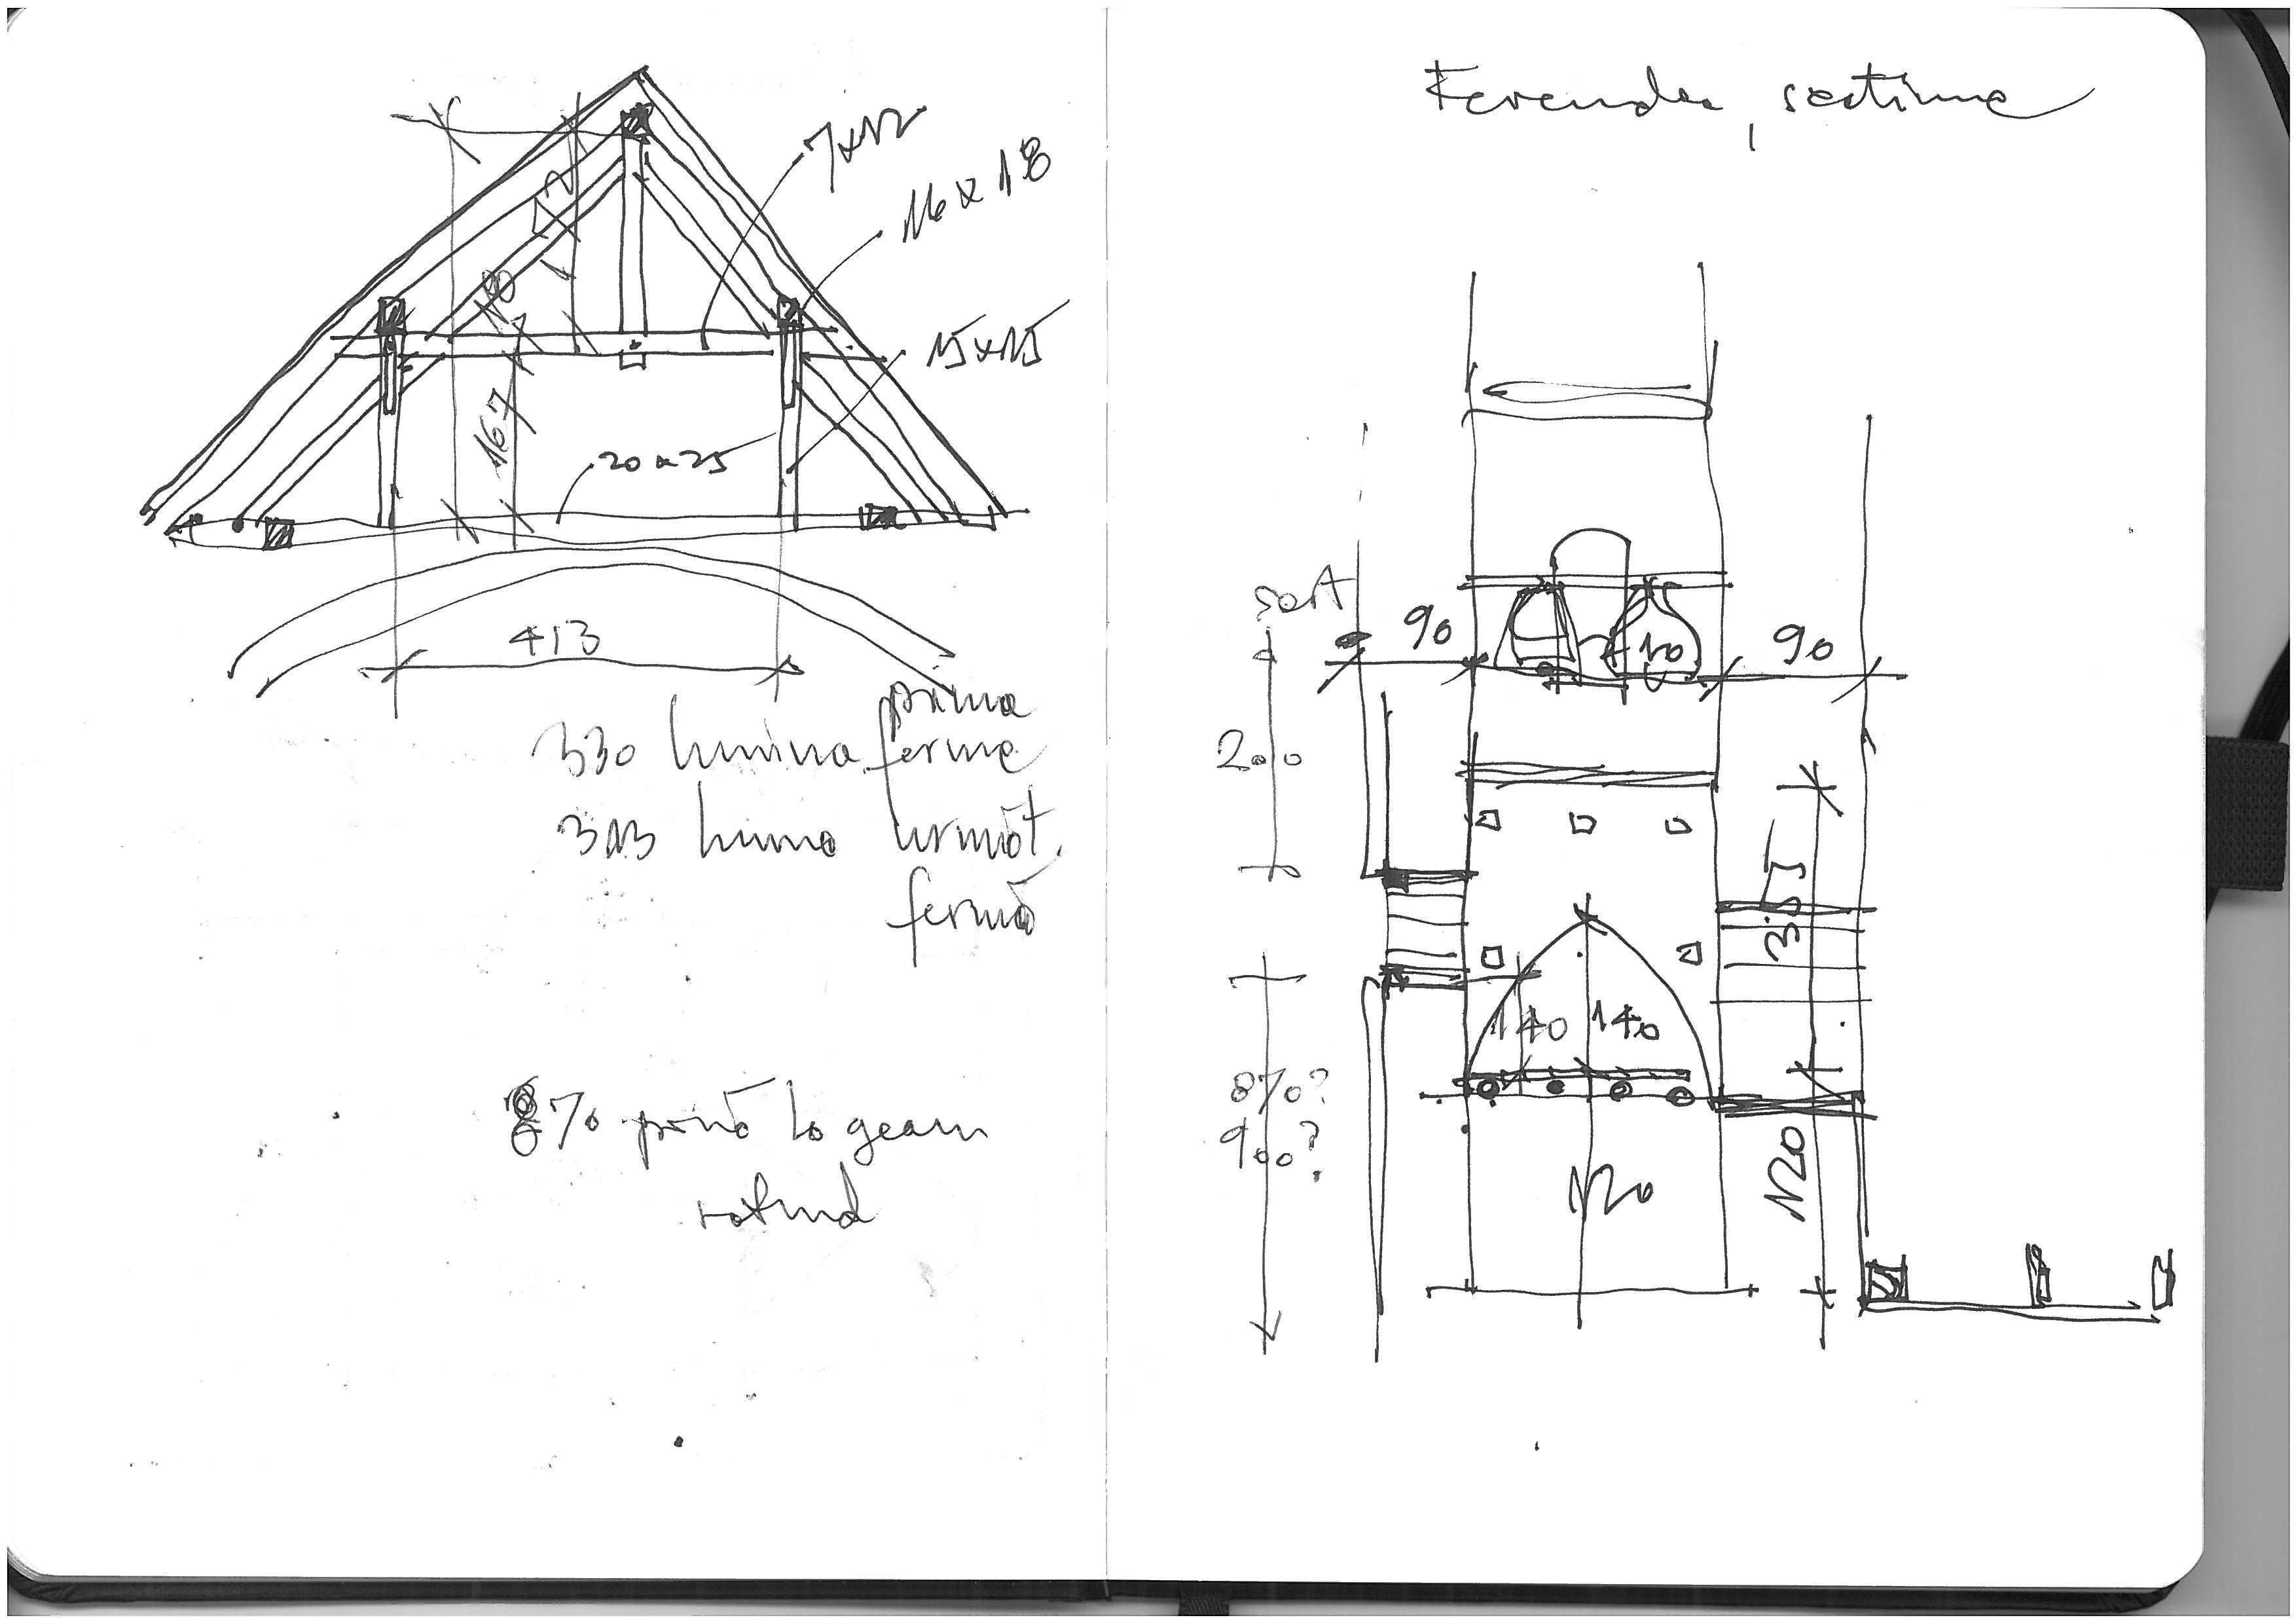 7x12
16x18
15x15
167
20x25
413
prima
330 lumina ferme
313 lumina următ.
fermă
870 până la geam
rotund
Ferendia, secțiune
90
90
200
140
140
870?
900?
120
120